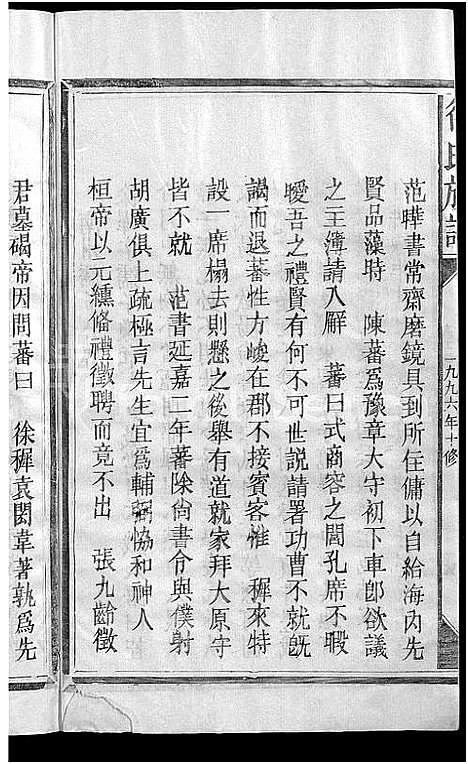 徐氏族譜
一九九六年十修
范曄書常齋磨鏡具到所在傭以自給海內先
賢品藻時　陳蕃為豫章大守初下車卽欲議
之主簿請入廨　蕃曰式商容之閭孔席不暇
曖吾之禮賢有何不可世説請署功曹不就旣
謁而退蕃性方峻在郡不接賓客惟　穉來特
設一席榻去則懸之後舉有道就家拜大原守
皆不就　范書延嘉二年蕃除尙書令與僕射
胡廣俱上疏極言先生宜為輔弼恊和神人
桓帝以元纁俻禮徵聘而竟不出　張九齡徵
君墓碣帝因問蕃曰　徐穉袁閎韋著孰為先